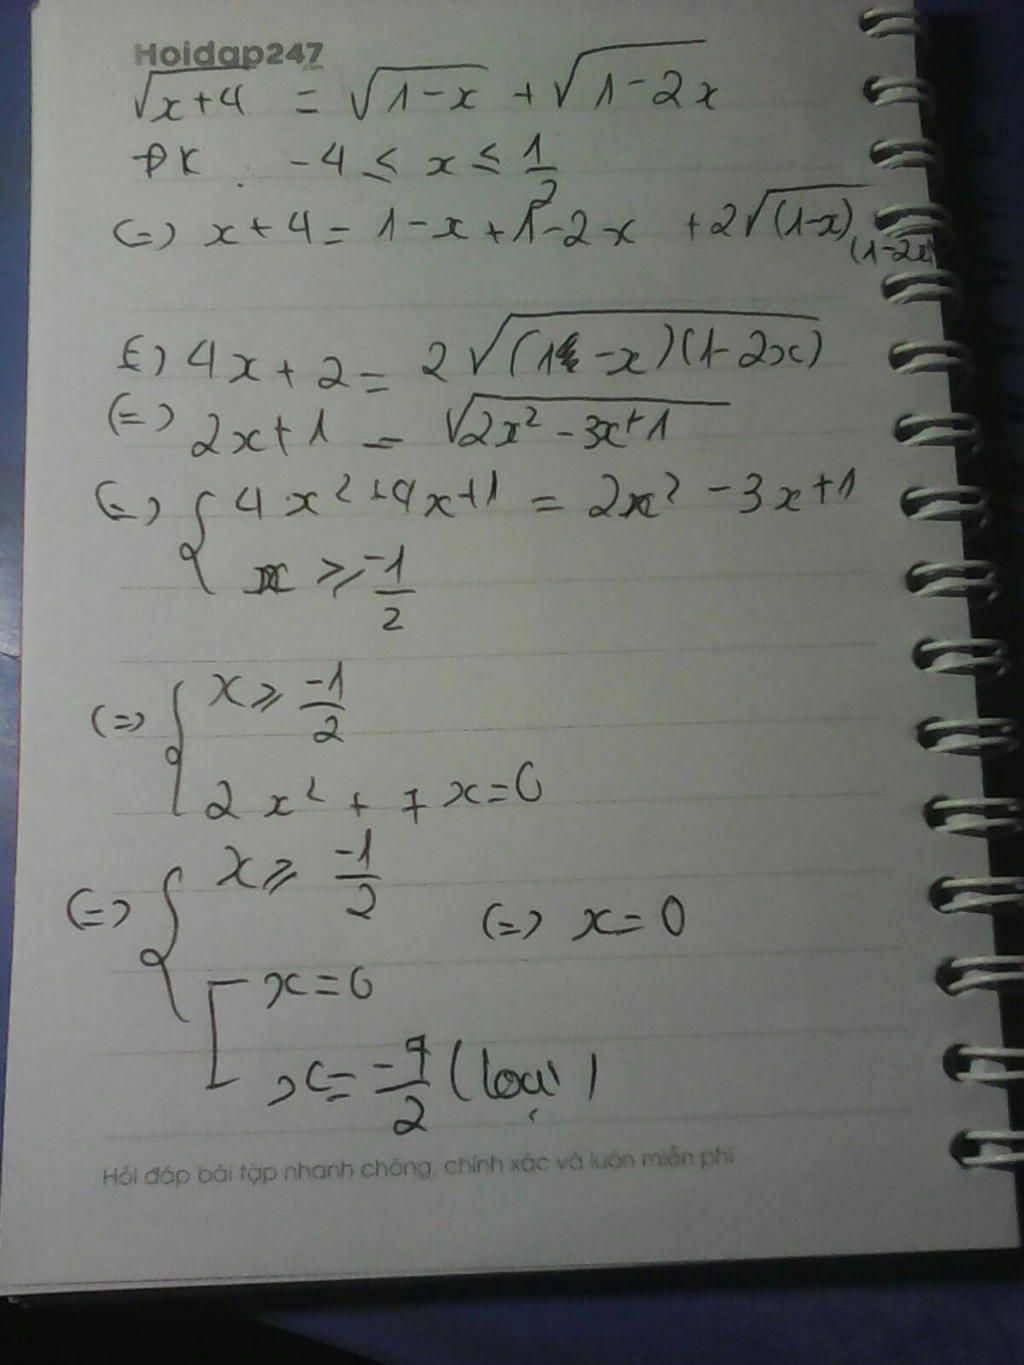 Hoidap247
√x+4 = √1-x + √1-2x
ĐK : -4 ≤ x ≤ 1/2
(=) x+4 = 1-x+1-2x +2√(1-x)(1-2x)
(=) 4x+2 = 2√(1-x)(1-2x)
(=) 2x+1 = √2x²-3x+1
(=) { 4x²+4x+1 = 2x²-3x+1
x ≥ -1/2
(=) { x ≥ -1/2
2x² + 7x=0
(=) { x ≥ -1/2 (=) x=0
[ x=0
x= -7/2 (loại)
Hỏi đáp bài tập nhanh chóng, chính xác và luôn miễn phí